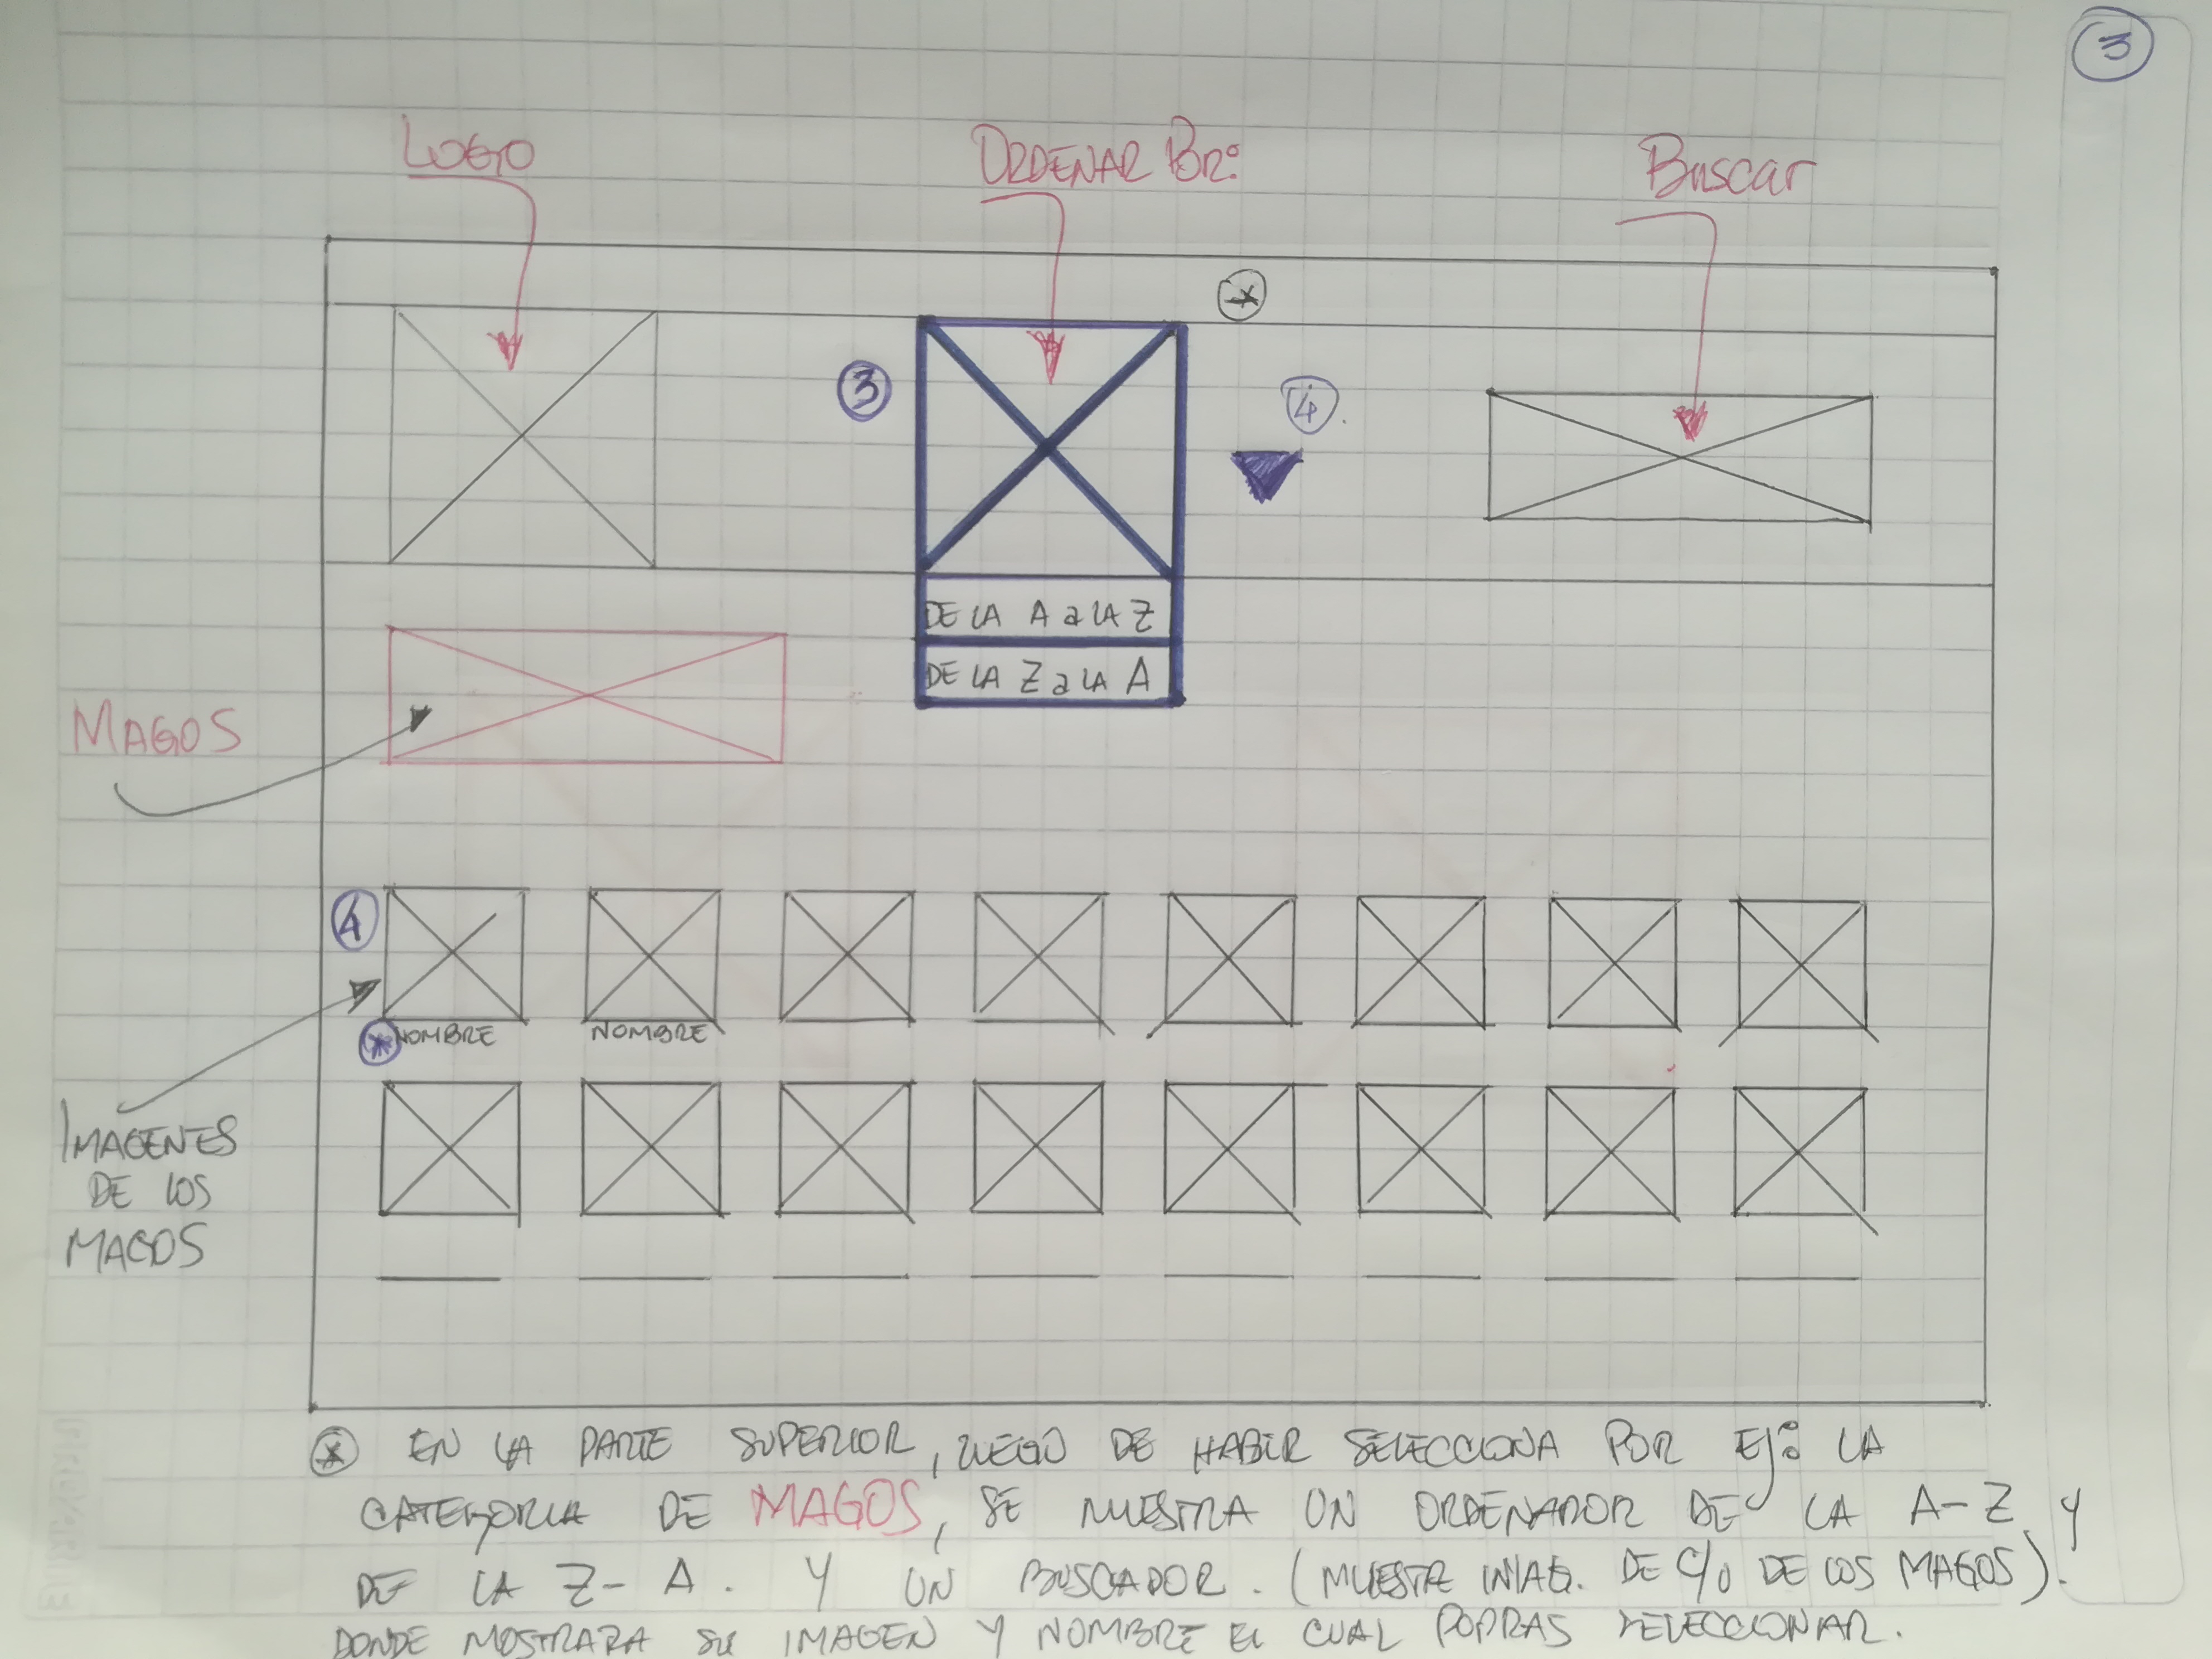 3
LOGO
ORDENAR POR:
Buscar
*
3
4.
DE LA A a LA Z
DE LA Z a LA A
MAGOS
4
* NOMBRE
NOMBRE
IMAGENES
DE LOS
MAGOS
* EN LA PARTE SUPERIOR, LUEGO DE HABER SELECCIONA POR EJ: LA
CATEGORIA DE MAGOS, SE MUESTRA UN ORDENADOR DE LA A-Z Y
DE LA Z-A. Y UN BUSCADOR. (MUESTR IMAG. DE C/U DE LOS MAGOS).
DONDE MOSTRARA SU IMAGEN Y NOMBRE EL CUAL PODRAS SELECCIONAR.